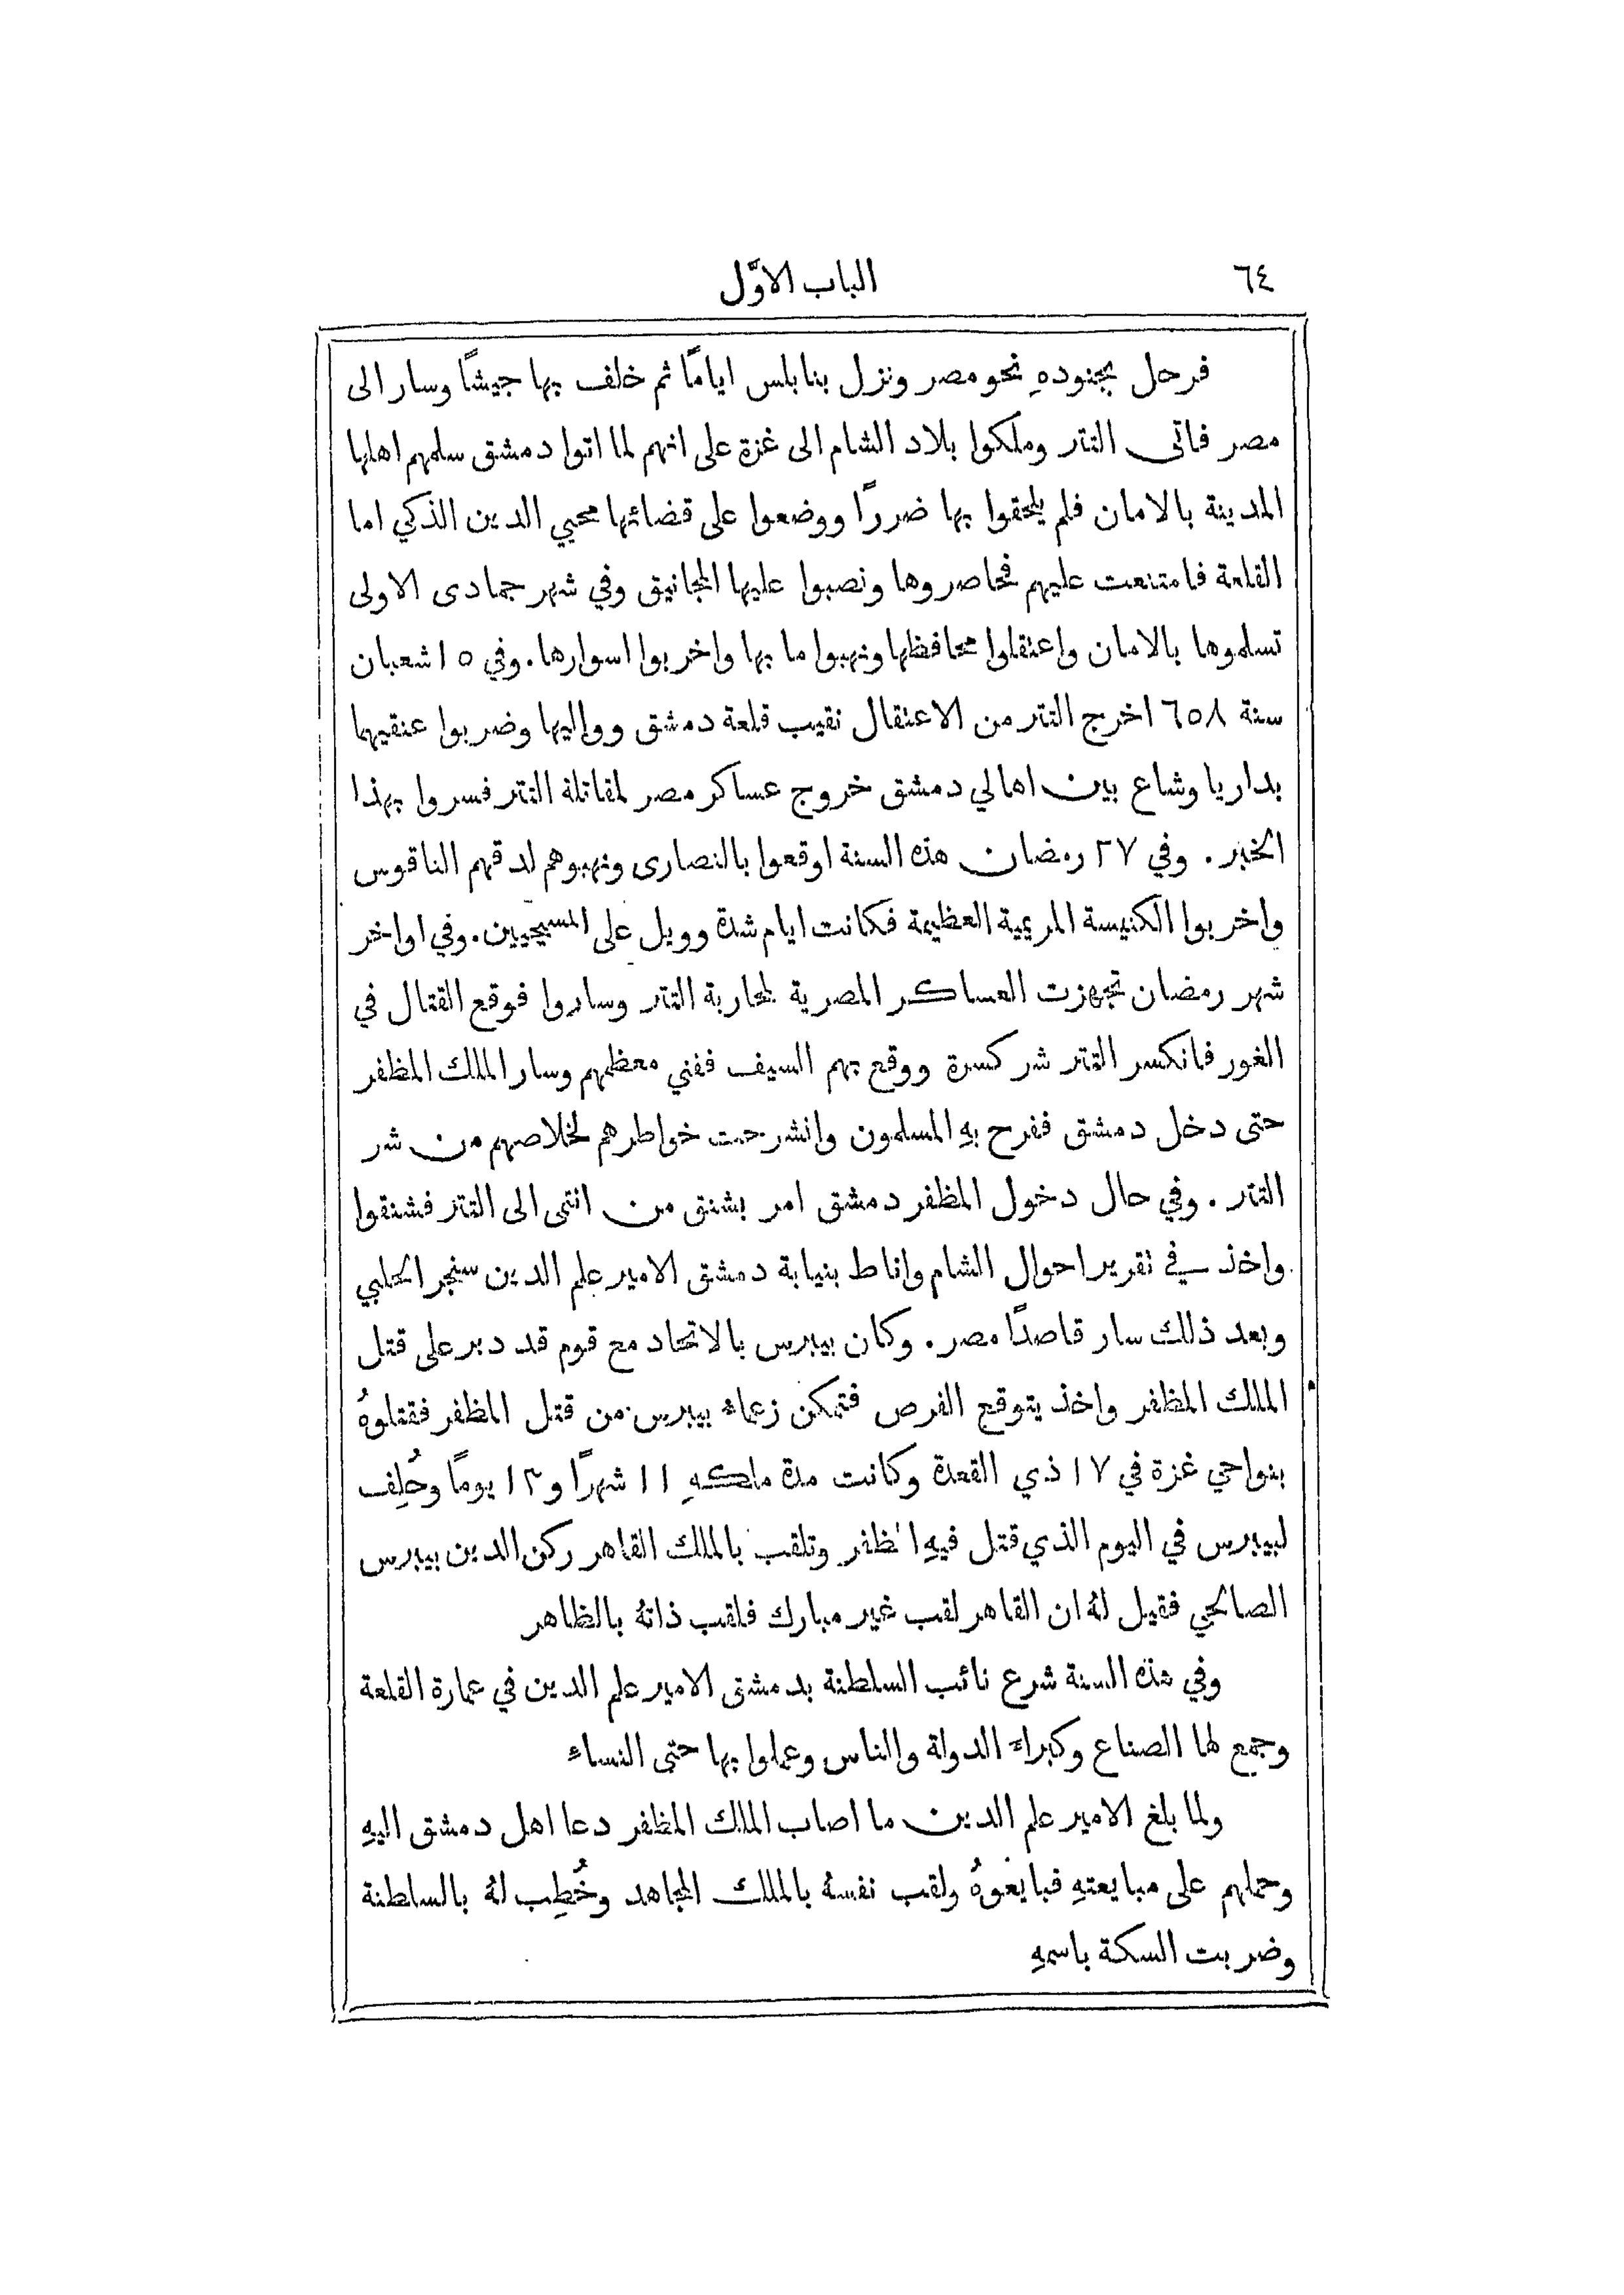 ٦٤ الباب الاوّل
فرحل بجنودهِ نحو مصر ونزل بنابلس ايامًا ثم خلف بها جيشًا وسار الى
مصر فاتى التتر وملكوا بلاد الشام الى غزة على انهم لما اتوا دمشق سلمهم اهلها
المدينة بالامان فلم يلحقوا بها ضررًا ووضعوا على قضائها محيي الدين الذكي اما
القلعة فامتنعت عليهم فحاصروها ونصبوا عليها المجانيق وفي شهر جمادى الاولى
تسلموها بالامان واعتقلوا محافظها ونهبوا ما بها واخربوا اسوارها. وفي ١٥ شعبان
سنة ٦٥٨ اخرج التتر من الاعتقال نقيب قلعة دمشق وواليها وضربوا عنقيهما
بداريا وشاع بين اهالي دمشق خروج عساكر مصر لمقاتلة التتر فسروا بهذا
الخبر. وفي ٢٧ رمضان هذه السنة اوقعوا بالنصارى ونهبوهم لدقهم الناقوس
واخربوا الكنيسة المريمية العظيمة فكانت ايام شدة وويل على المسيحيين. وفي اواخر
شهر رمضان تجهزت العساكر المصرية لمحاربة التتر وساروا فوقع القتال في
الغور فانكسر التتر شر كسرة ووقع بهم السيف ففني معظمهم وسار الملك المظفر
حتى دخل دمشق ففرح بهِ المسلمون وانشرحت خواطرهم لخلاصهم من شر
التتر. وفي حال دخول المظفر دمشق امر بشنق من انتمى الى التتر فشنقوا
واخذ في تقرير احوال الشام واناط بنيابة دمشق الامير علم الدين سنجر الحلبي
وبعد ذلك سار قاصدًا مصر. وكان بيبرس بالاتحاد مع قوم قد دبر على قتل
الملك المظفر واخذ يتوقع الفرص فتمكن زعماء بيبرس من قتل المظفر فقتلوهُ
بنواحي غزة في ١٧ ذي القعدة وكانت مدة ملكهِ ١١ شهرًا و١٣ يومًا وحُلِف
لبيبرس في اليوم الذي قتل فيهِ المظفر وتلقب بالملك القاهر ركن الدين بيبرس
الصالحي فقيل لهُ ان القاهر لقب غير مبارك فلقب ذاتهُ بالظاهر
وفي هذه السنة شرع نائب السلطنة بدمشق الامير علم الدين في عمارة القلعة
وجمع لها الصناع وكبراء الدولة والناس وعملوا بها حتى النساء
ولما بلغ الامير علم الدين ما اصاب الملك المظفر دعا اهل دمشق اليهِ
وحملهم على مبايعتهِ فبايعوهُ ولقب نفسهُ بالملك المجاهد وخُطِب لهُ بالسلطنة
وضربت السكة باسمهِ